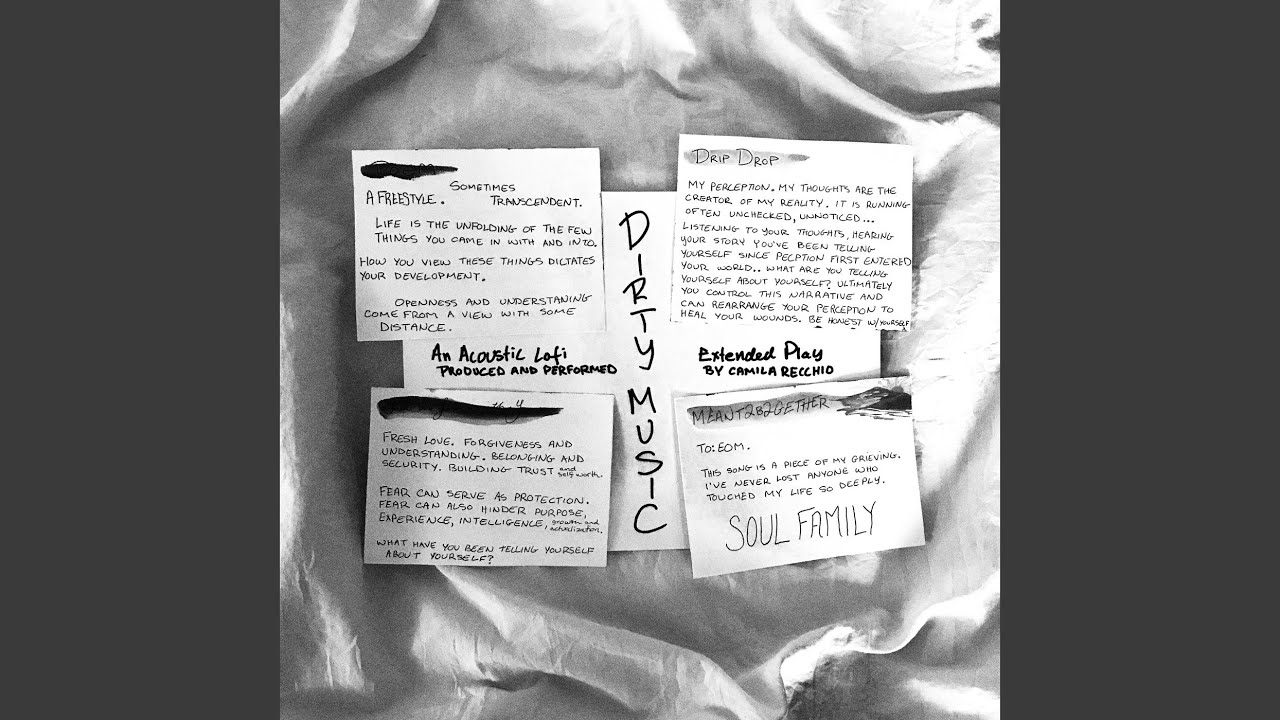 SOMETIMES
A FREESTYLE. TRANSCENDENT.
LIFE IS THE UNFOLDING OF THE FEW
THINGS YOU CAME IN WITH AND INTO.
HOW YOU VIEW THESE THINGS DICTATES
YOUR DEVELOPMENT.
OPENNESS AND UNDERSTANING
COME FROM A VIEW WITH SOME
DISTANCE.
DRIP DROP
MY PERCEPTION. MY THOUGHTS ARE THE
CREATOR OF MY REALITY. IT IS RUNNING
OFTEN UNCHECKED, UNNOTICED...
LISTENING TO YOUR THOUGHTS, HEARING
YOUR STORY YOU'VE BEEN TELLING
YOURSELF SINCE PECPTION FIRST ENTERED
YOUR WORLD.. WHAT ARE YOU TELLING
YOURSELF ABOUT YOURSELF? ULTIMATELY
YOU CONTROL THIS NARRATIVE AND
CAN REARRANGE YOUR PERCEPTION TO
HEAL YOUR WOUNDS. BE HONEST W/YOURSELF
DIRTY MUSIC
An Acoustic Lofi
PRODUCED AND PERFORMED
Extended Play
BY CAMILA RECCHIO
FRESH LOVE. FORGIVENESS AND
UNDERSTANDING. BELONGING AND
SECURITY. BUILDING TRUST and self worth.
FEAR CAN SERVE AS PROTECTION.
FEAR CAN ALSO HINDER PURPOSE,
EXPERIENCE, INTELLIGENCE, growth and actualization.
WHAT HAVE YOU BEEN TELLING YOURSELF
ABOUT YOURSELF?
MEANT2B2GETHER
TO: EOM.
THIS SONG IS A PIECE OF MY GRIEVING.
I'VE NEVER LOST ANYONE WHO
TOUCHED MY LIFE SO DEEPLY.
SOUL FAMILY